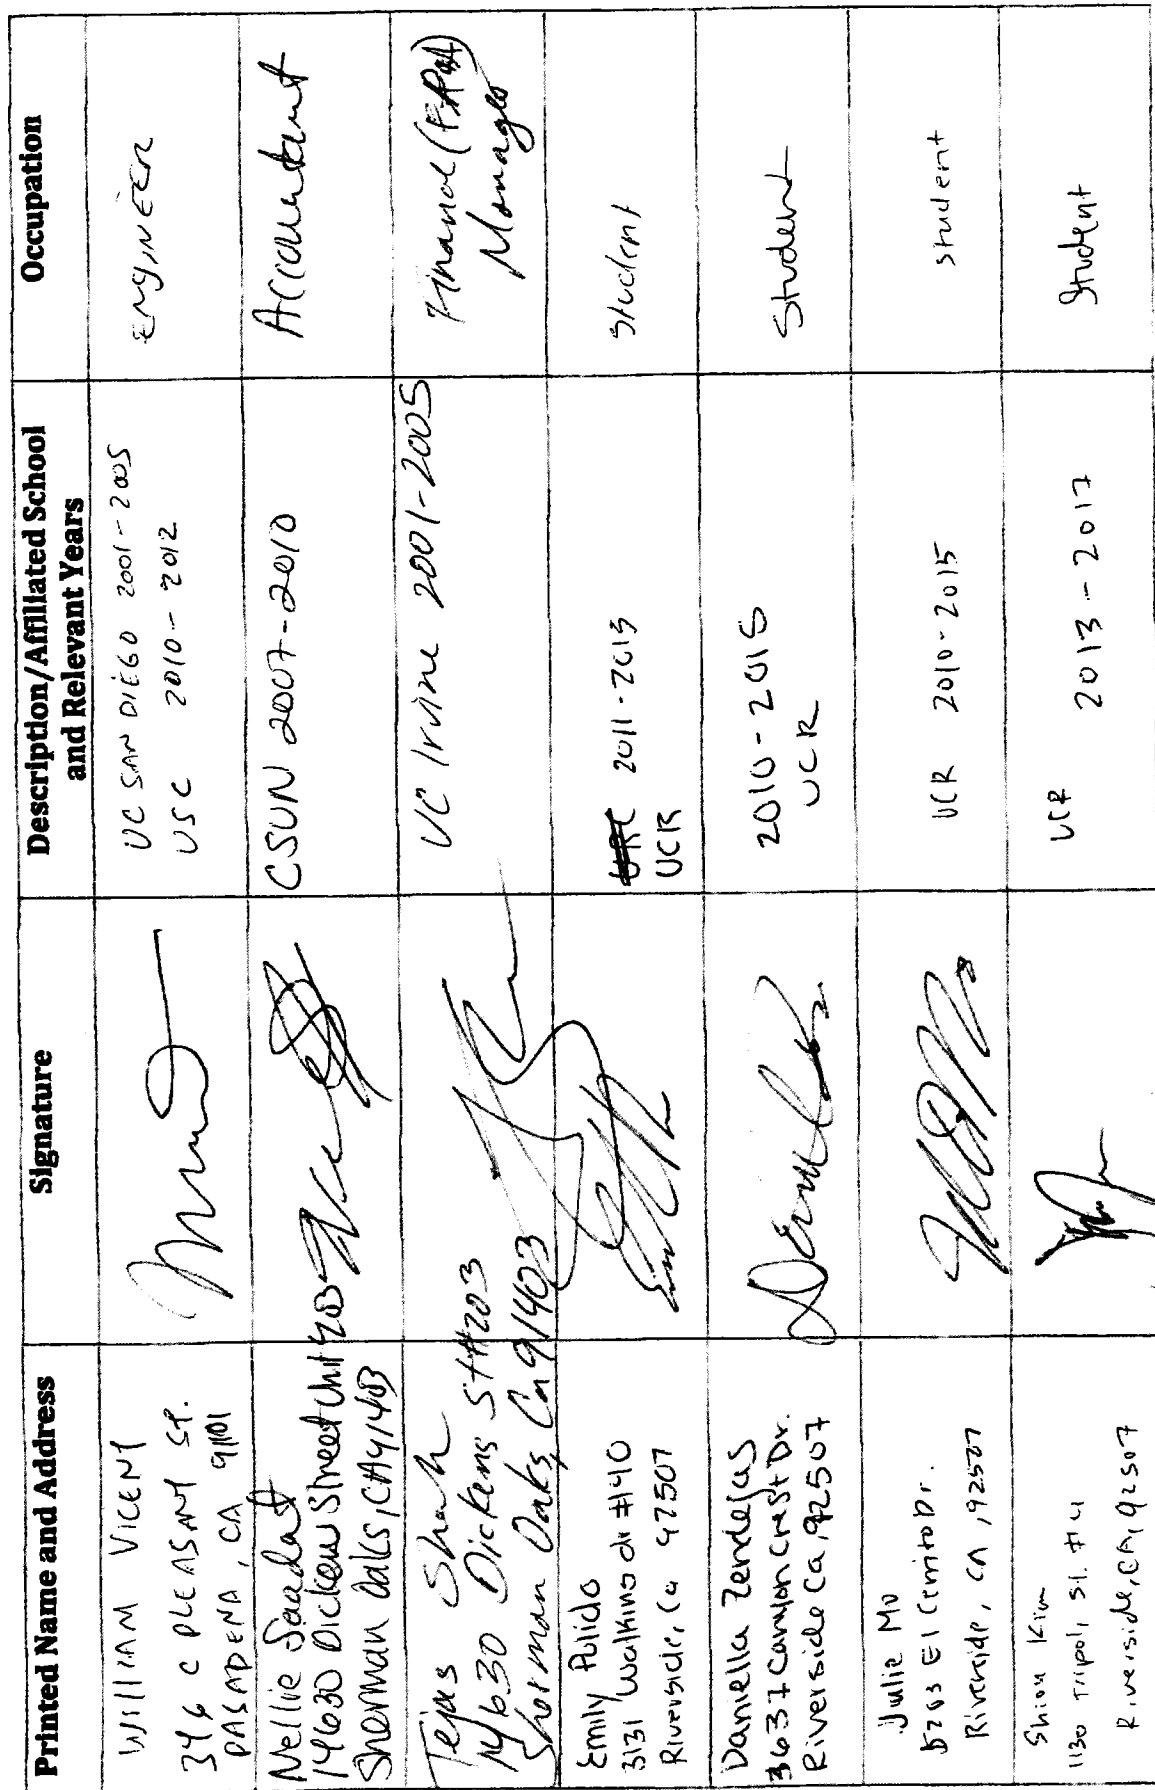 Printed Name and Address
Signature
Description/Affiliated School
and Relevant Years
Occupation
WILLIAM VICENT
346 C PLEASANT ST.
PASADENA, CA 91101
UC SAN DIEGO 2001-2005
USC 2010-2012
ENGINEER
Nellie Saadat
14630 Dickens Street Unit 203
Sherman Oaks, CA 91403
CSUN 2007-2010
Accountant
Tejas Shah
14630 Dickens St #203
Sherman Oaks, Ca 91403
UC Irvine 2001-2005
Finance (FP&A)
Manager
Emily Pulido
3131 Watkins dr #140
Riverside, Ca 92507
2011-2015
UCR
Student
Daniella Zendejas
3637 Canyon Crest Dr.
Riverside Ca, 92507
2010-2015
UCR
Student
Julie Mo
5203 El Cerrito Dr.
Riverside, CA, 92507
UCR 2010-2015
student
Shion Kim
1130 Tripoli St. #4
Riverside, CA, 92507
UCR 2013-2017
Student